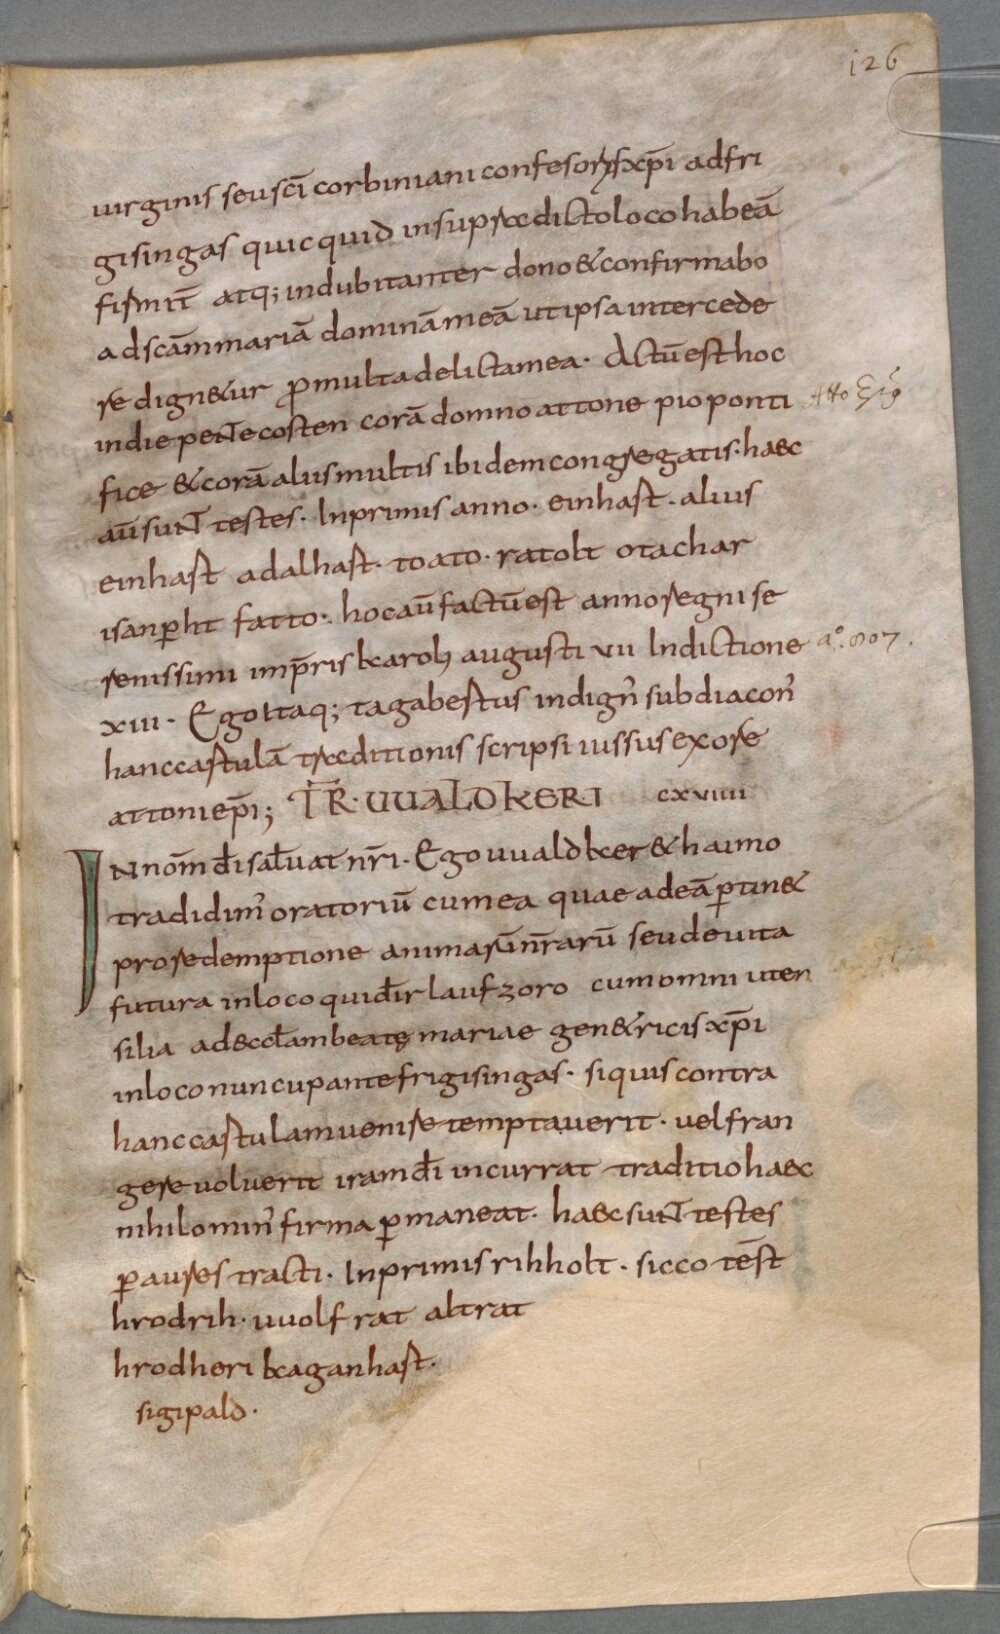 126
uirginis seu sc̄i corbiniani confesoris xp̄i ad fri
gisingas quicquid in supradicto loco habeā
firmit̄ atq; indubitanter dono & confirmabo
ad scām mariā dominā meā ut ipsa intercede
re dign&ur ꝓ multa delicta mea · Actū est hoc
in die pentecosten corā domno attone pio ponti
Atto Ep̄s
fice & corā aliis multis ibidem congregatis · haec
aū sunt testes · Inprimis anno · einhart · alius
einhart adalhart · toato · ratolt otachar
isanꝑht fatto · hoc aū factū est anno regni se
renissimi imp̄ris karoli augusti vii Indictione
aº. 807.
xiii · Ego itaq; tagabertus indign' subdiacon'
hanc cartulā traditionis scripsi iussus ex ore
attoni ep̄i; TR̄ · UUALDKERI cxviiii
IN nom̄ dī saluat nr̄i · Ego uualdker & haimo
tradidim' oratoriū cum ea quae ad eā ꝑtin&
pro redemptione animarū nr̄arū seu de uita
futura in loco qui dr̄ laufzoro cum omni uten
silia ad eccl̄am beatę mariae gen&ricis xp̄i
in loco nuncupante frigisingas · si quis contra
hanc cartulam uenire temptauerit · uel fran
gere uoluerit iram dī incurrat traditio haec
nihilomin' firma ꝑmaneat · haec sunt testes
ꝑ aures tracti · Inprimis rihholt · sicco tēst
hrodrih · uuolfrat altrat
hrodheri kaganhart ·
sigipald ·